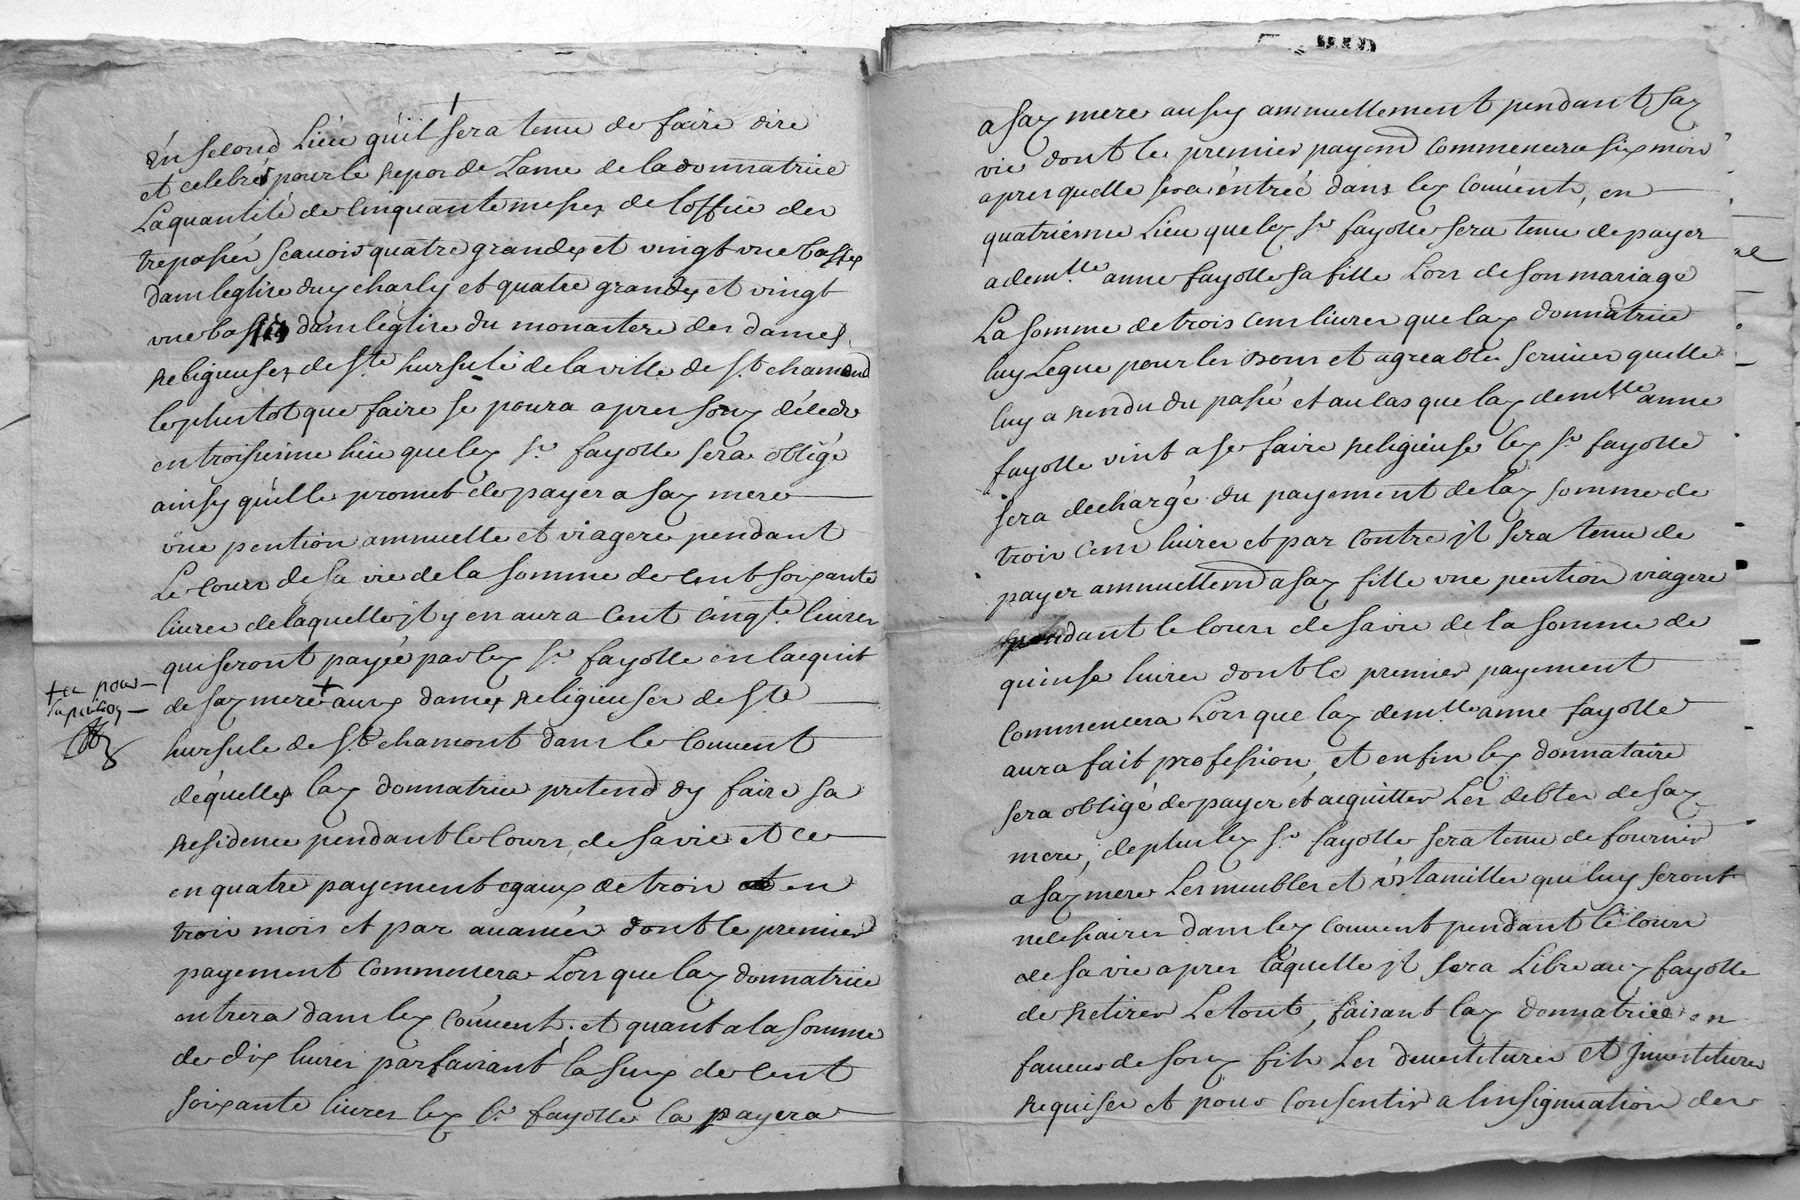 én second Liéu qu'il sera tenu de faire dire
et celebrér pour le repos de Lame de la donnatrice
La quantité de cinquante messes de loffice des
trepassés scauoir quatre grandes et vingt vne basses
dans leglise dud charly et quatre grandes et vingt
vne basses dans léglise du monastere des dames
Religieuses de Ste hursule de la ville de St chamond
le plustot que faire se poura apres sond décéds
en troisieme lieu que led Sr fayolle sera obligé
ainsy qu'ille promet de payer a sad mere
vne pention annuelle et viagere pendant
Le cours de sa vie de la somme de cent soixante
liures de laquelle jl y en aura cent cinqte liures
qui seront payée par led Sr fayolle en lacquit
de sad mere + aux dames religieuses de Ste
+ et pour
sa pention
hursule de St chamont dans le couuent
déquelles lad donnatrice pretend dy faire sa
residence pendant le cours de sa vie et ce
en quatre payement egaux de trois en
trois mois et par auances dont le premier
payement commencera Lors que lad donnatrice
entrera dans led couuent. et quant a la somme
de dix liures parfaisant la susd de cent
soixante liures led Sr fayolle la payera
a sad mere aussy annuellement pendant sad
vie dont le premier payend commencera six mois
apres quelle sera éntréé dans led couuent, en
quatrieme Lieu que led Sr fayolle sera tenu de payer
a demlle anne fayolle sa fille Lors de son mariage
La somme de trois cens liures que lad donnatrice
luy Legue pour les bons et agreables seruices quelle
luy a rendu du passé et au cas que lad demlle anne
fayolle vint a se faire religieuse led Sr fayolle
sera déchargé du payement de lad somme de
trois cens liures et par contre jl sera tenu de
payer annuellemt a sad fille vne pention viagere
pendant le cours de sa vie de la somme de
quinse liures dont le premier payement
commencera Lors que lad demlle anne fayolle
aura fait profession, et enfin led donnataire
sera obligé de payer et acquitter Les debtes de sad
mere, de plus led Sr fayolle sera tenu de fournir
a sad mere Les meubles et vstancilles qui luy seront
necessaires dans led couuent pendant le cours
de sa vie apres laquelle jl sera Libre aud fayolle
de retirer Le tout, faisant lad donnatrice en
faueur de sond fils Les deuestitures et jnuestitures
requises et pour consentir a linsignuation des